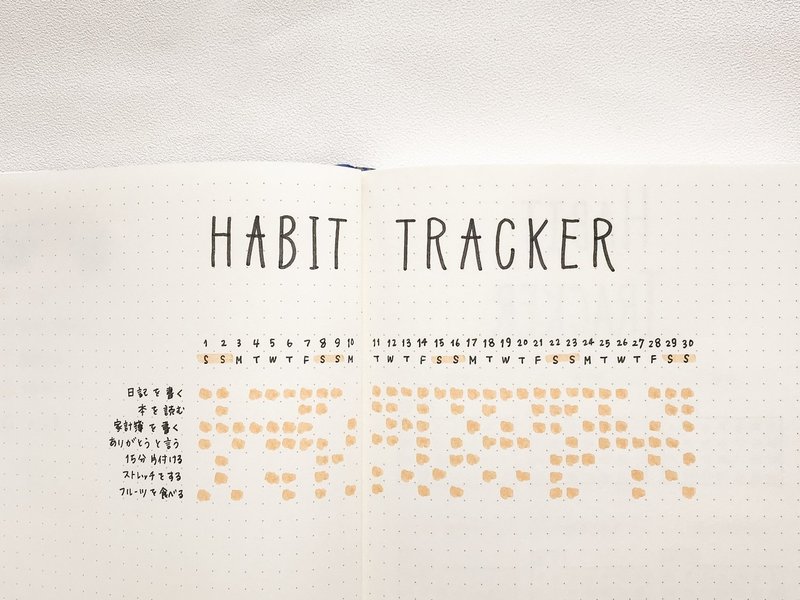 HABIT TRACKER
1 2 3 4 5 6 7 8 9 10 11 12 13 14 15 16 17 18 19 20 21 22 23 24 25 26 27 28 29 30
S S M T W T F S S M T W T F S S M T W T F S S M T W T F S S
日記を書く
本を読む
家計簿を書く
ありがとうと言う
15分片付ける
ストレッチをする
フルーツを食べる